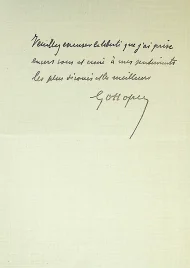 Veuillez excuser la liberté que j'ai prise
envers vous et croire à mes sentiments
les plus dévoués et les meilleurs